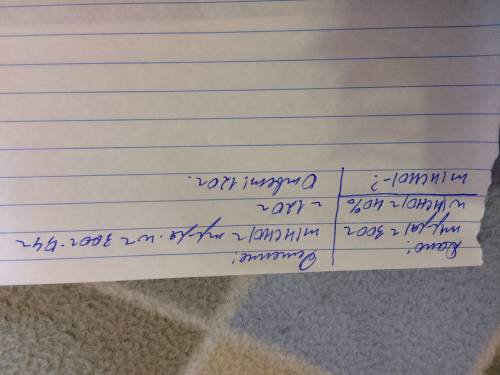 Дано:
m(р-ра) = 300г
w(HCHO) = 40%
m(HCHO) - ?
Решение:
m(HCHO) = m р-ра · w = 300г · 0,4 =
= 120г
Ответ: 120г.